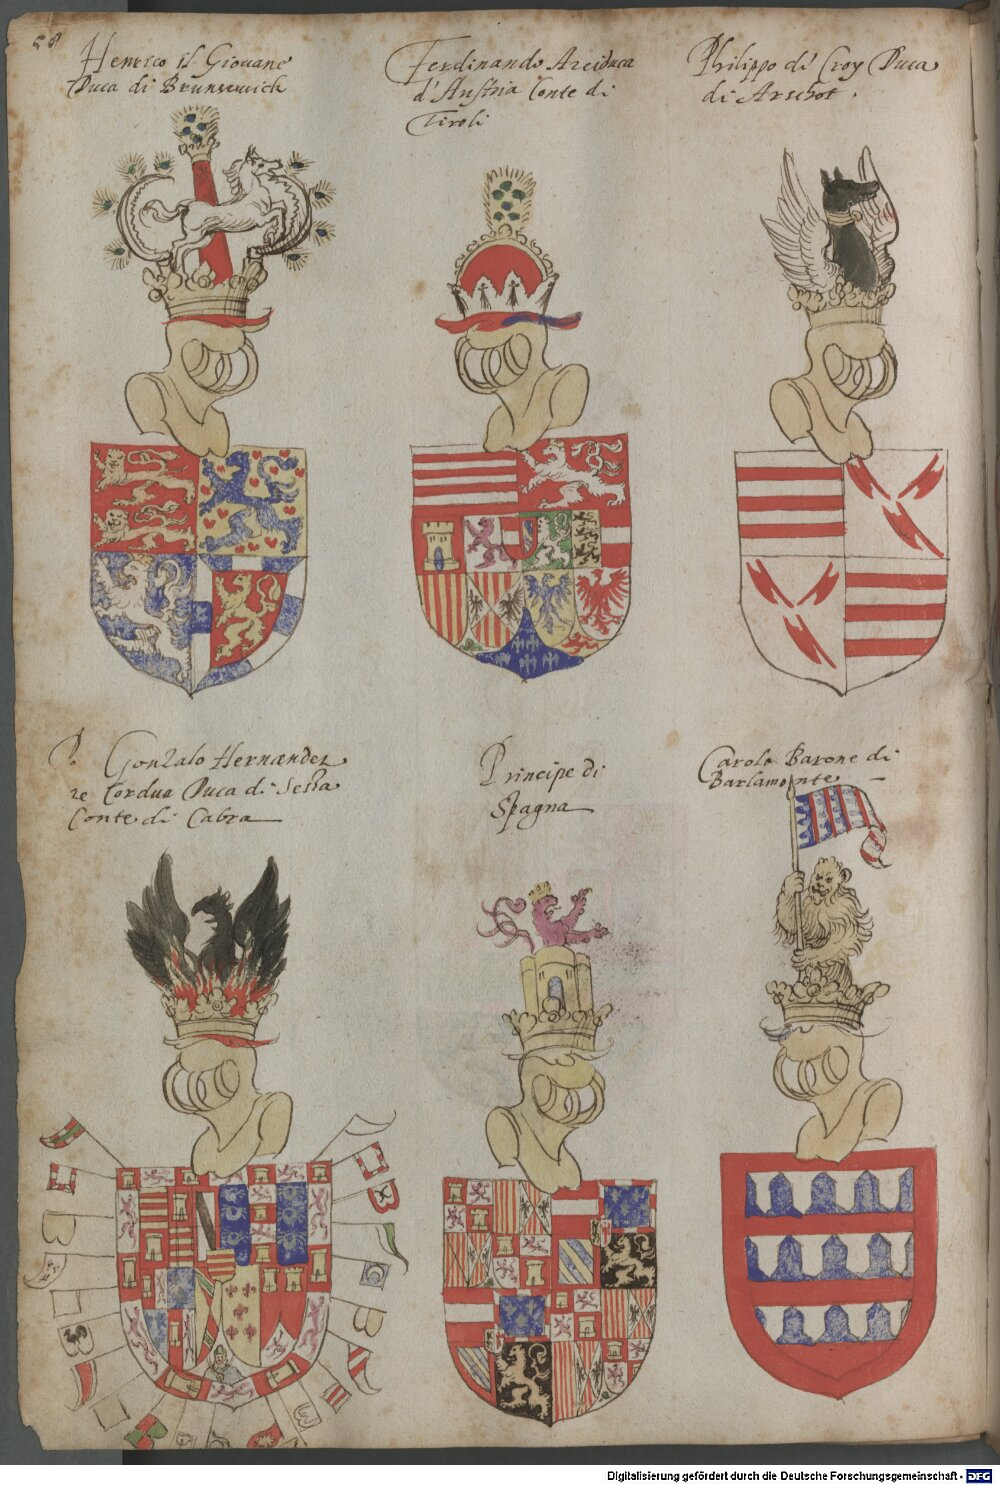 58
Henrico il Giovane
Duca di Brunswick
Ferdinando Arciduca
d'Austria Conte di
Tiroli
Philippo di Croy Duca
di Arschot.
Gonzalo Hernandez
Cordua Duca di Sessa
Conte di Cabra
Principe di
Spagna
Carolo Barone di
Barlamonte
Digitalisierung gefördert durch die Deutsche Forschungsgemeinschaft - DFG